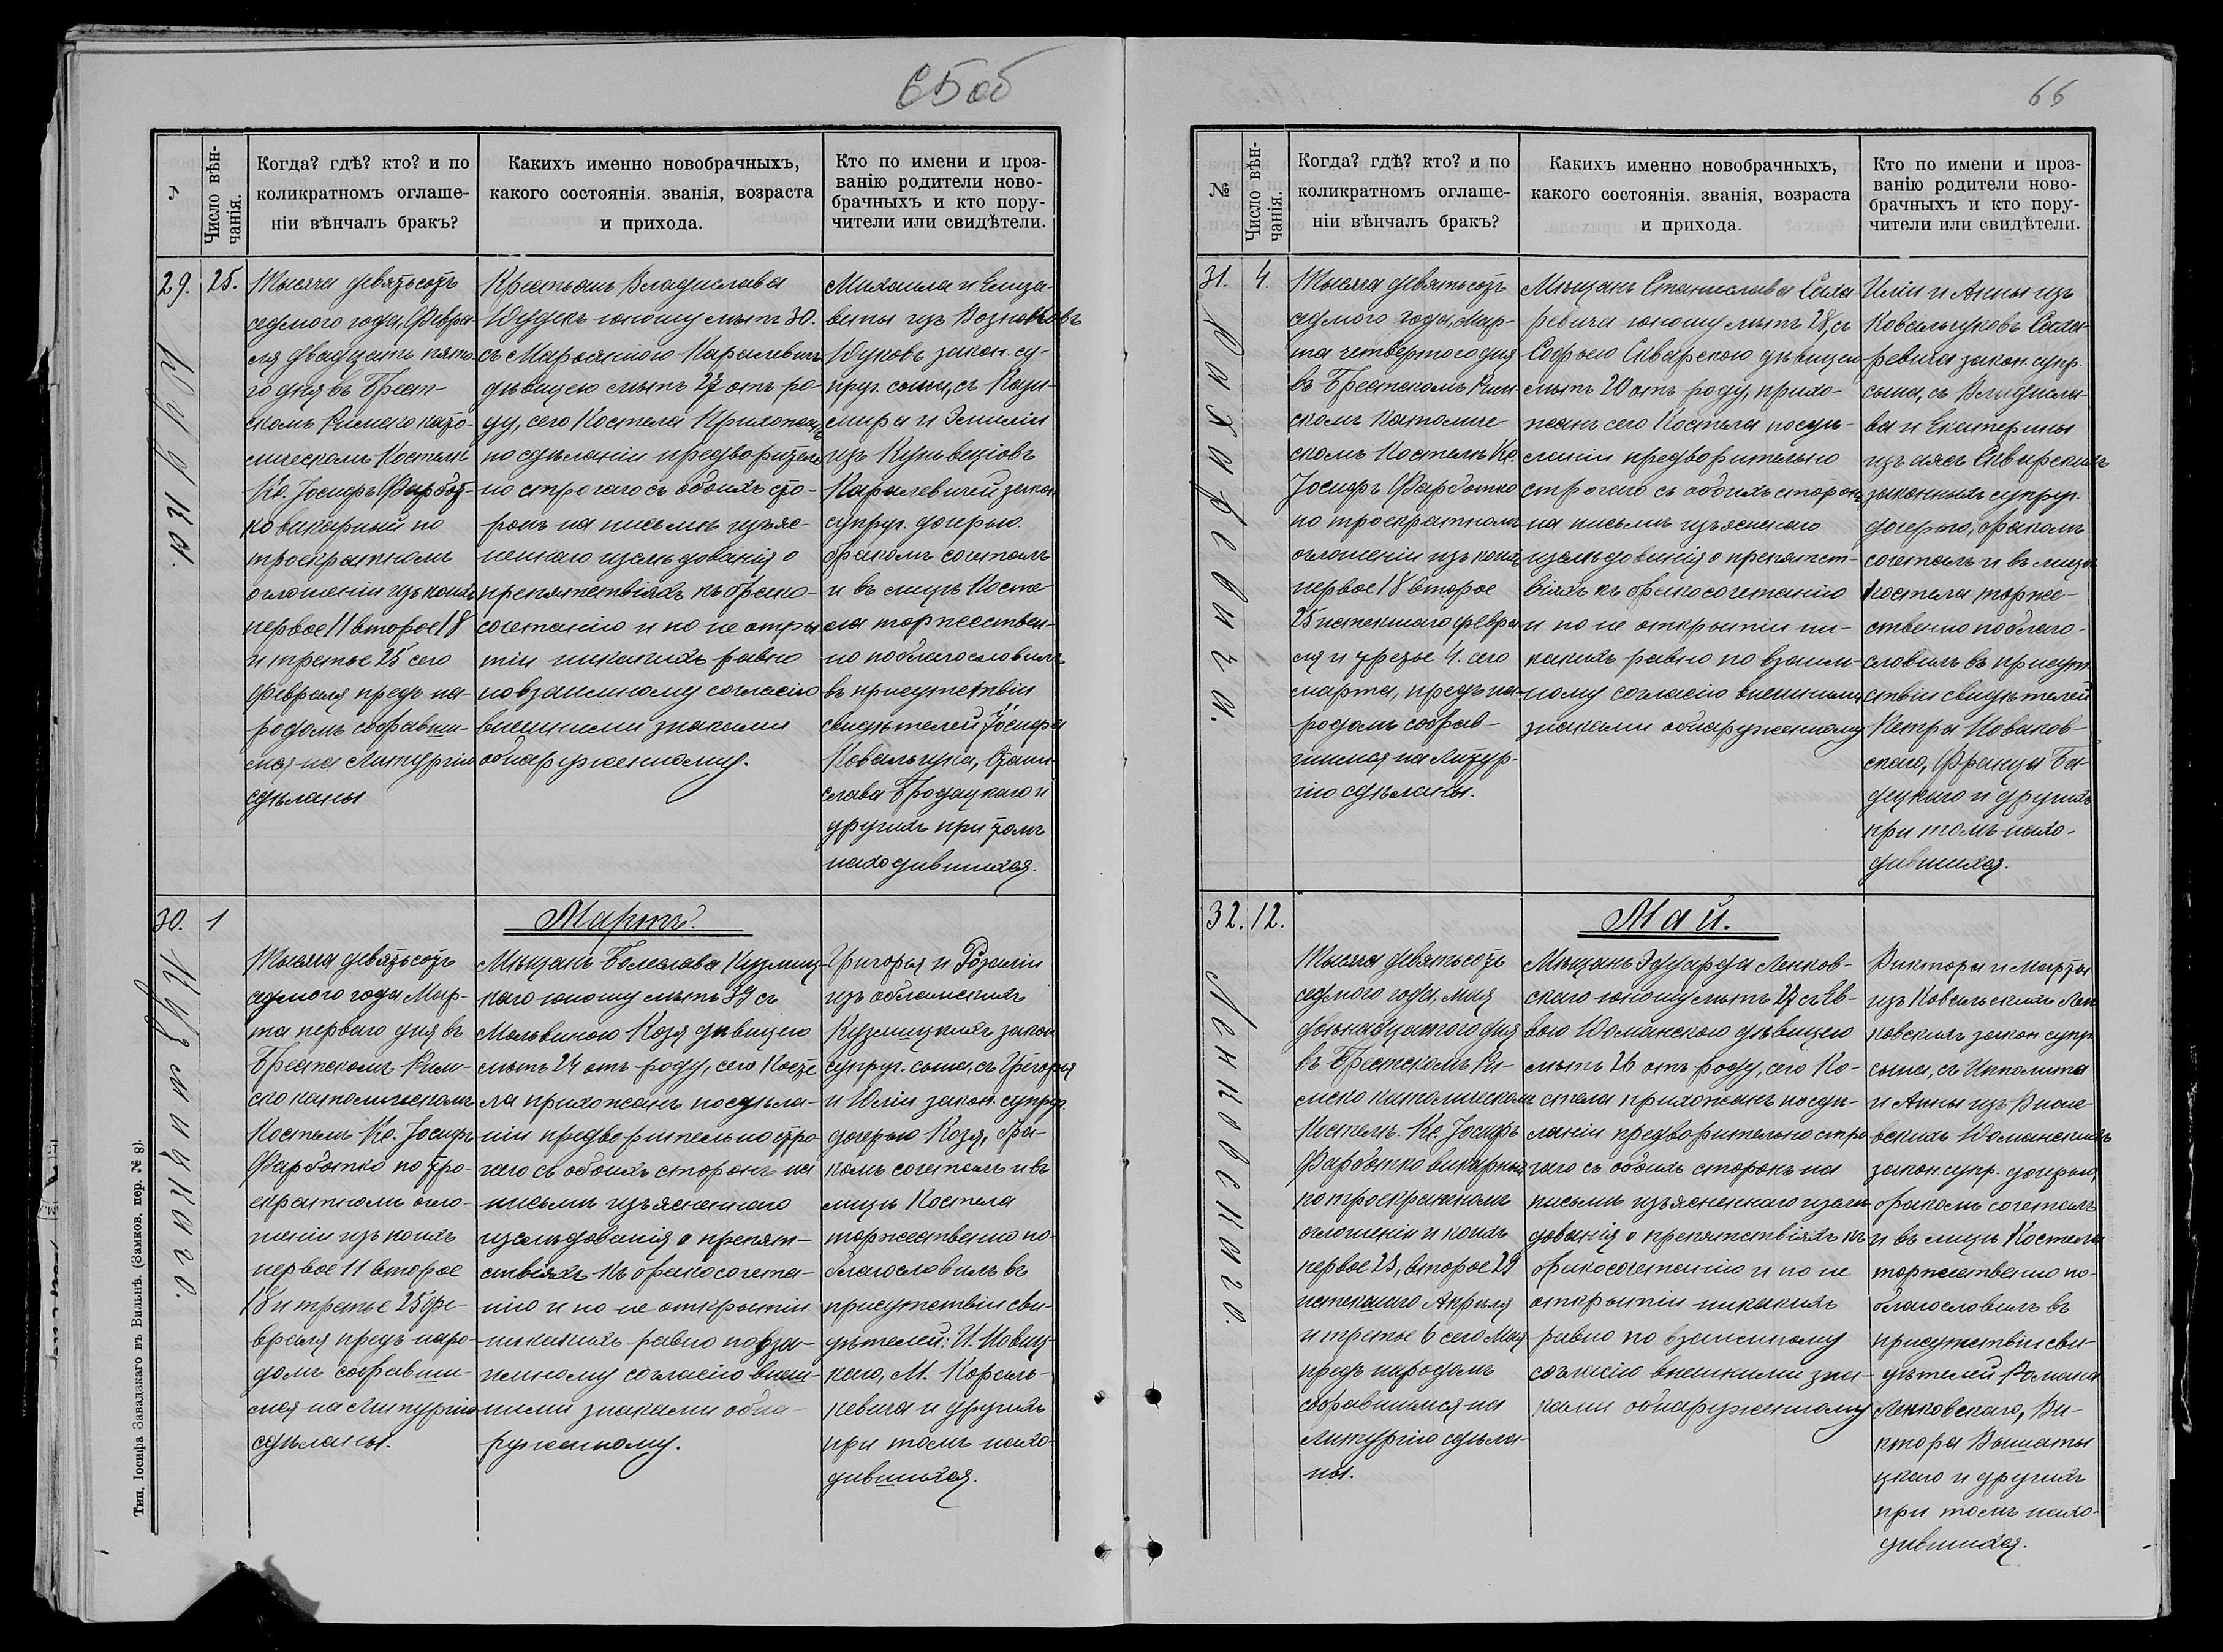 65 об
№
Число вѣн-
чанія.
Когда? гдѣ? кто? и по
коликратномъ оглаше-
ніи вѣнчалъ бракъ?
Какихъ именно новобрачныхъ,
какого состоянія. званія, возраста
и прихода.
Кто по имени и проз-
ванію родители ново-
брачныхъ и кто пору-
чители или свидѣтели.
29.
Юдука.
25.
Тысяча девятьсотъ
седмого года, Февра-
ля двадцать пято-
го дня въ Брест-
скомъ Римско като-
лическомъ Костелѣ
Кс. Іосифъ Фарбот-
ко викарный по
троекратномъ
оглашеніи изъ коихъ
первое 11 второе 18
и третье 25 сего
Февраля предъ на-
родомъ собравши-
мся на Литургію
сдѣланы
Крестьянъ Владислава
Юдукъ юношу лѣтъ 30.
съ Марьянною Каралевичъ
дѣвицею лѣтъ 27 отъ ро-
ду, сего Костела Прихожанъ
по сдѣланіи предворитель
но строгаго съ обоихъ сто-
ронъ на письмѣ изъяс-
неннаго изслѣдованія о
препятствіяхъ къ брако-
сочетанію и по не откры
тіи никакихъ равно
по взаимному согласію
внешними знаками
обнаруженному.
Михаила и Елиза-
веты изъ
Юдуковъ закон. су-
пруг. сына, съ Кази-
мира и Эмиліи
изъ
Каралевичей закон
супруг. дочерью.
бракомъ сочеталъ
и въ лицѣ Косте-
ла торжествен-
но поблагословилъ
въ присутствіи
свидѣтелей Іосифа
Ковальчука, Стани-
слава Бродацкаго и
другихъ при томъ
находившихся.
30.
Кузмицкаго.
1
Мартъ.
Тысяча девятьсотъ
седмого года Мар-
та перваго дня въ
Брестскомъ Рим-
ско католическомъ
Костелѣ Кс. Іосифъ
Фарботко по тро-
екратномъ огло-
шеніи изъ коихъ
первое 11 второе
18 и третье 25 фе-
враля предъ наро-
домъ собравши-
мся на Литургію
сдѣланы.
Мѣщанъ Болеслава Кузмиц-
каго юношу лѣтъ 37 съ
Мальвиною Козя дѣвицею
лѣтъ 24 отъ роду, сего Косте
ла прихожанъ по сдѣла-
ніи предворительно стро
гаго съ обоихъ сторонъ на
письмѣ изъясненнаго
изслѣдованія о препят-
ствіяхъ къ бракосочета-
нію и по не открытіи
никакихъ равно по вза-
имному согласію внеш-
ними знаками обна-
руженному.
Григорья и Розаліи
изъ
Кузмицкихъ закон
супруг. сына, съ Григорья
и Юліи закон. супруг.
дочерью Козя, бра-
комъ сочеталъ и въ
лицѣ Костела
торжественно по-
благословилъ въ
присутствіи сви-
дѣтелей: И. Новиц-
каго, М. Король-
кевича и другихъ
при томъ нахо-
дившихся.
Тип. Іосифа Завадзкаго въ Вильнѣ. (Замков. пер. № 9).
66
№
Число вѣн-
чанія.
Когда? гдѣ? кто? и по
коликратномъ оглаше-
ніи вѣнчалъ бракъ?
Какихъ именно новобрачныхъ,
какого состоянія. званія, возраста
и прихода.
Кто по имени и проз-
ванію родители ново-
брачныхъ и кто пору-
чители или свидѣтели.
31.
4.
Тысяча девятьсотъ
седмого года, Мар-
та четвертого дня
въ Брестскомъ Рим-
скомъ Католиче-
скомъ Костелѣ Кс.
Іосифъ Фарботко
по троекратномъ
оглошеніи изъ коихъ
первое 18 второе
25 истекшаго февра
ля и третье 4. сего
марта, предъ на-
родомъ собрав-
шимся на Литур-
гію сдѣланы.
Мѣщанъ Станислава Саха
ревича юношу лѣтъ 28, съ
Софьею Скварскою дѣвицею
лѣтъ 20 отъ роду, прихо-
жанъ сего Костела по сдѣ-
ланіи предворительно
строгаго съ обоихъ сторонъ
на письмѣ изъясненаго
изслѣдованія о препятст-
віяхъ къ бракосочетанію
и по не открытіи ни-
какихъ равно по взаим-
ному согласію внешними
знаками обнаруженному
Иліи и Анны изъ
Ковальчуковъ Саха-
ревича закон. супр.
сына, съ Владисла-
ва и Екатерины
изъ Скварскихъ
законныхъ супруг.
дочерью, бракомъ
сочеталъ и въ лицѣ
Костела торже-
ственно поблаго-
словилъ въ присут
ствіи свидѣтелей
Петра Новаков-
скаго, Франца Ба-
децкаго и другихъ
при томъ нахо-
дившихся.
32.
Ленковскаго.
12.
Май.
Тысяча девятьсотъ
седмого года, мая
двѣнадцатого дня
въ Брестскомъ Ри-
мско католическомъ
Костелѣ. Кс. Іосифъ
Фарботко викарный
по троекратномъ
оглошеніи и коихъ
первое 23, второе 29
истекшаго Апрѣля
и третье 6 сего Мая
предъ народомъ
собравшимся на
Литургію сдѣла-
ны.
Мѣщанъ Эдуарда Ленков-
скаго юношу лѣтъ 27 съ Ев-
вою Юманскою дѣвицею
лѣтъ 26 отъ роду, сего Ко-
стела прихожанъ по сдѣ-
ланіи предворительно стро
гаго съ обоихъ сторонъ на
письмѣ изъясненнаго изслѣ
дованія о препятствіяхъ къ
бракосочетанію и по не
открытіи никакихъ
равно по взаимному
согласію внешними зна-
ками обнаруженному
Виктора и Марты
изъ Ковальскихъ Лен
ковскихъ закон супр.
сына, съ Ипполита
и Анны изъ
Юманскихъ
закон супр. дочерью,
бракомъ сочеталъ
и въ лицѣ Костела
торжественно по-
благословилъ въ
присутствіи сви-
дѣтелей Романа
Ленковскаго, Ви-
ктора
цкаго и другихъ
при томъ нахо-
дившихся.